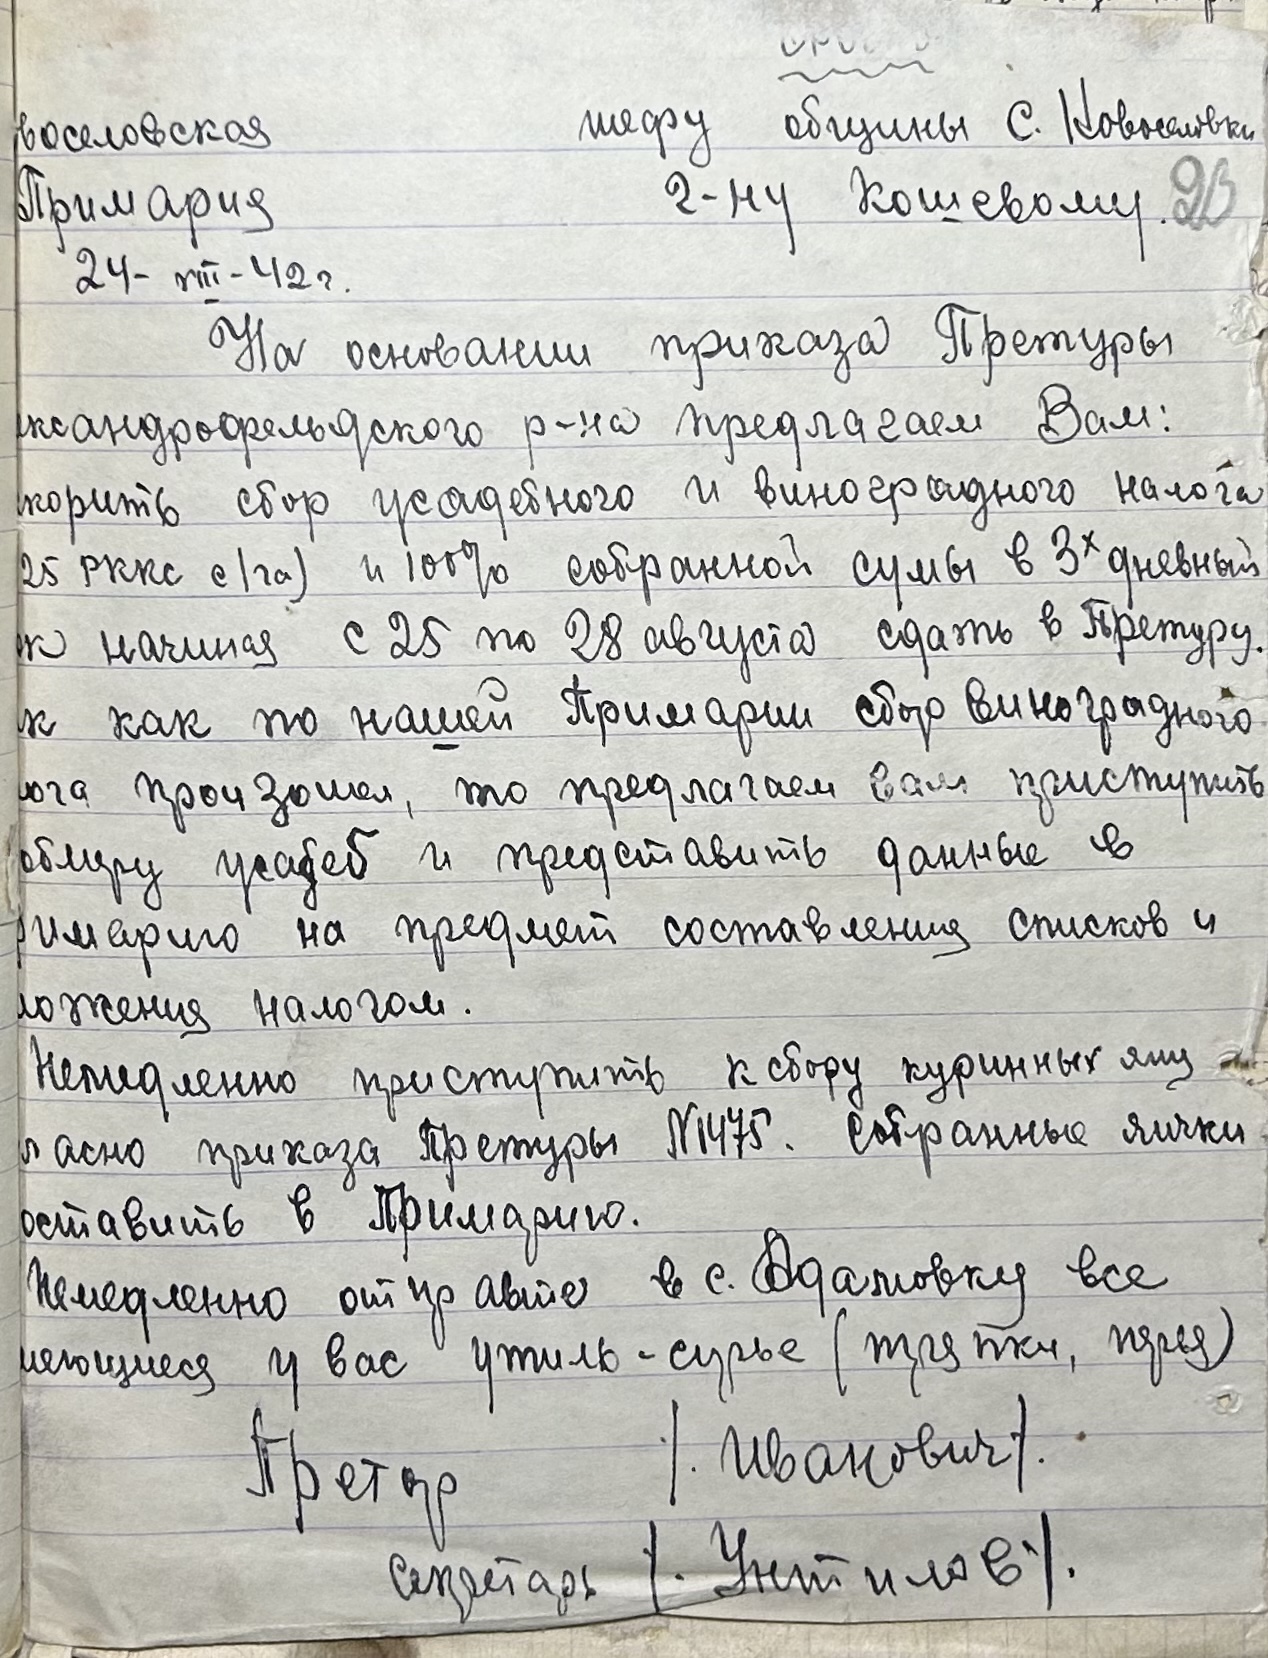 воселовская шефу общины с. Новоселовки
Примария г-ну Кошевому.
24-VIII-42г.
На основании приказа Претуры
ксандрофельдского р-на предлагаем Вам:
корить сбор усадебного и виноградного налога
25 РККС с/га) и 100% собранной сумы в 3х дневный
ок начиная с 25 по 28 августа сдать в Претуру.
к как по нашей Примарии сбор виноградного
лога произошел, то предлагаем вам приступить
обмеру усадеб и представить данные в
римарию на предмет составления списков и
ложения налогом.
Немедленно приступить к сбору куринных яиц
ласно приказа Претуры №1475. Собранные яички
оставить в Примарию.
Немедленно отправте в с. Адамовку все
меющиеся у вас утиль-сурье (тряпки, пярья)
Претор /. Иванович/.
Секретарь /. Унтилов/.